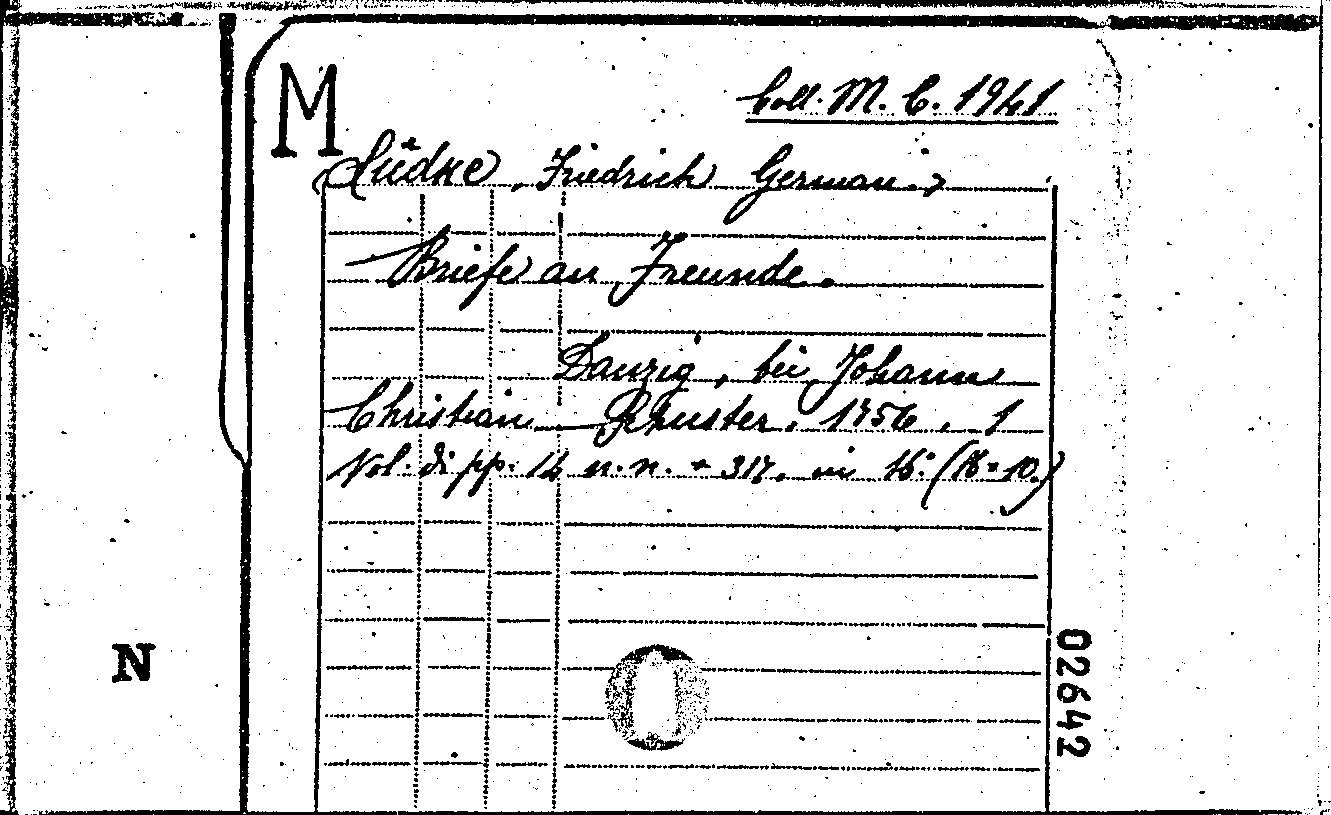 M
Coll. M. C. 1941
(Lüdke, Friedrich German.)
Briefe an Freunde.
Danzig, bei Johann
Christian Schuster, 1756, 1
Vol. di pp. 14 n.n. + 317, in 16° (18=10.)
N
02642